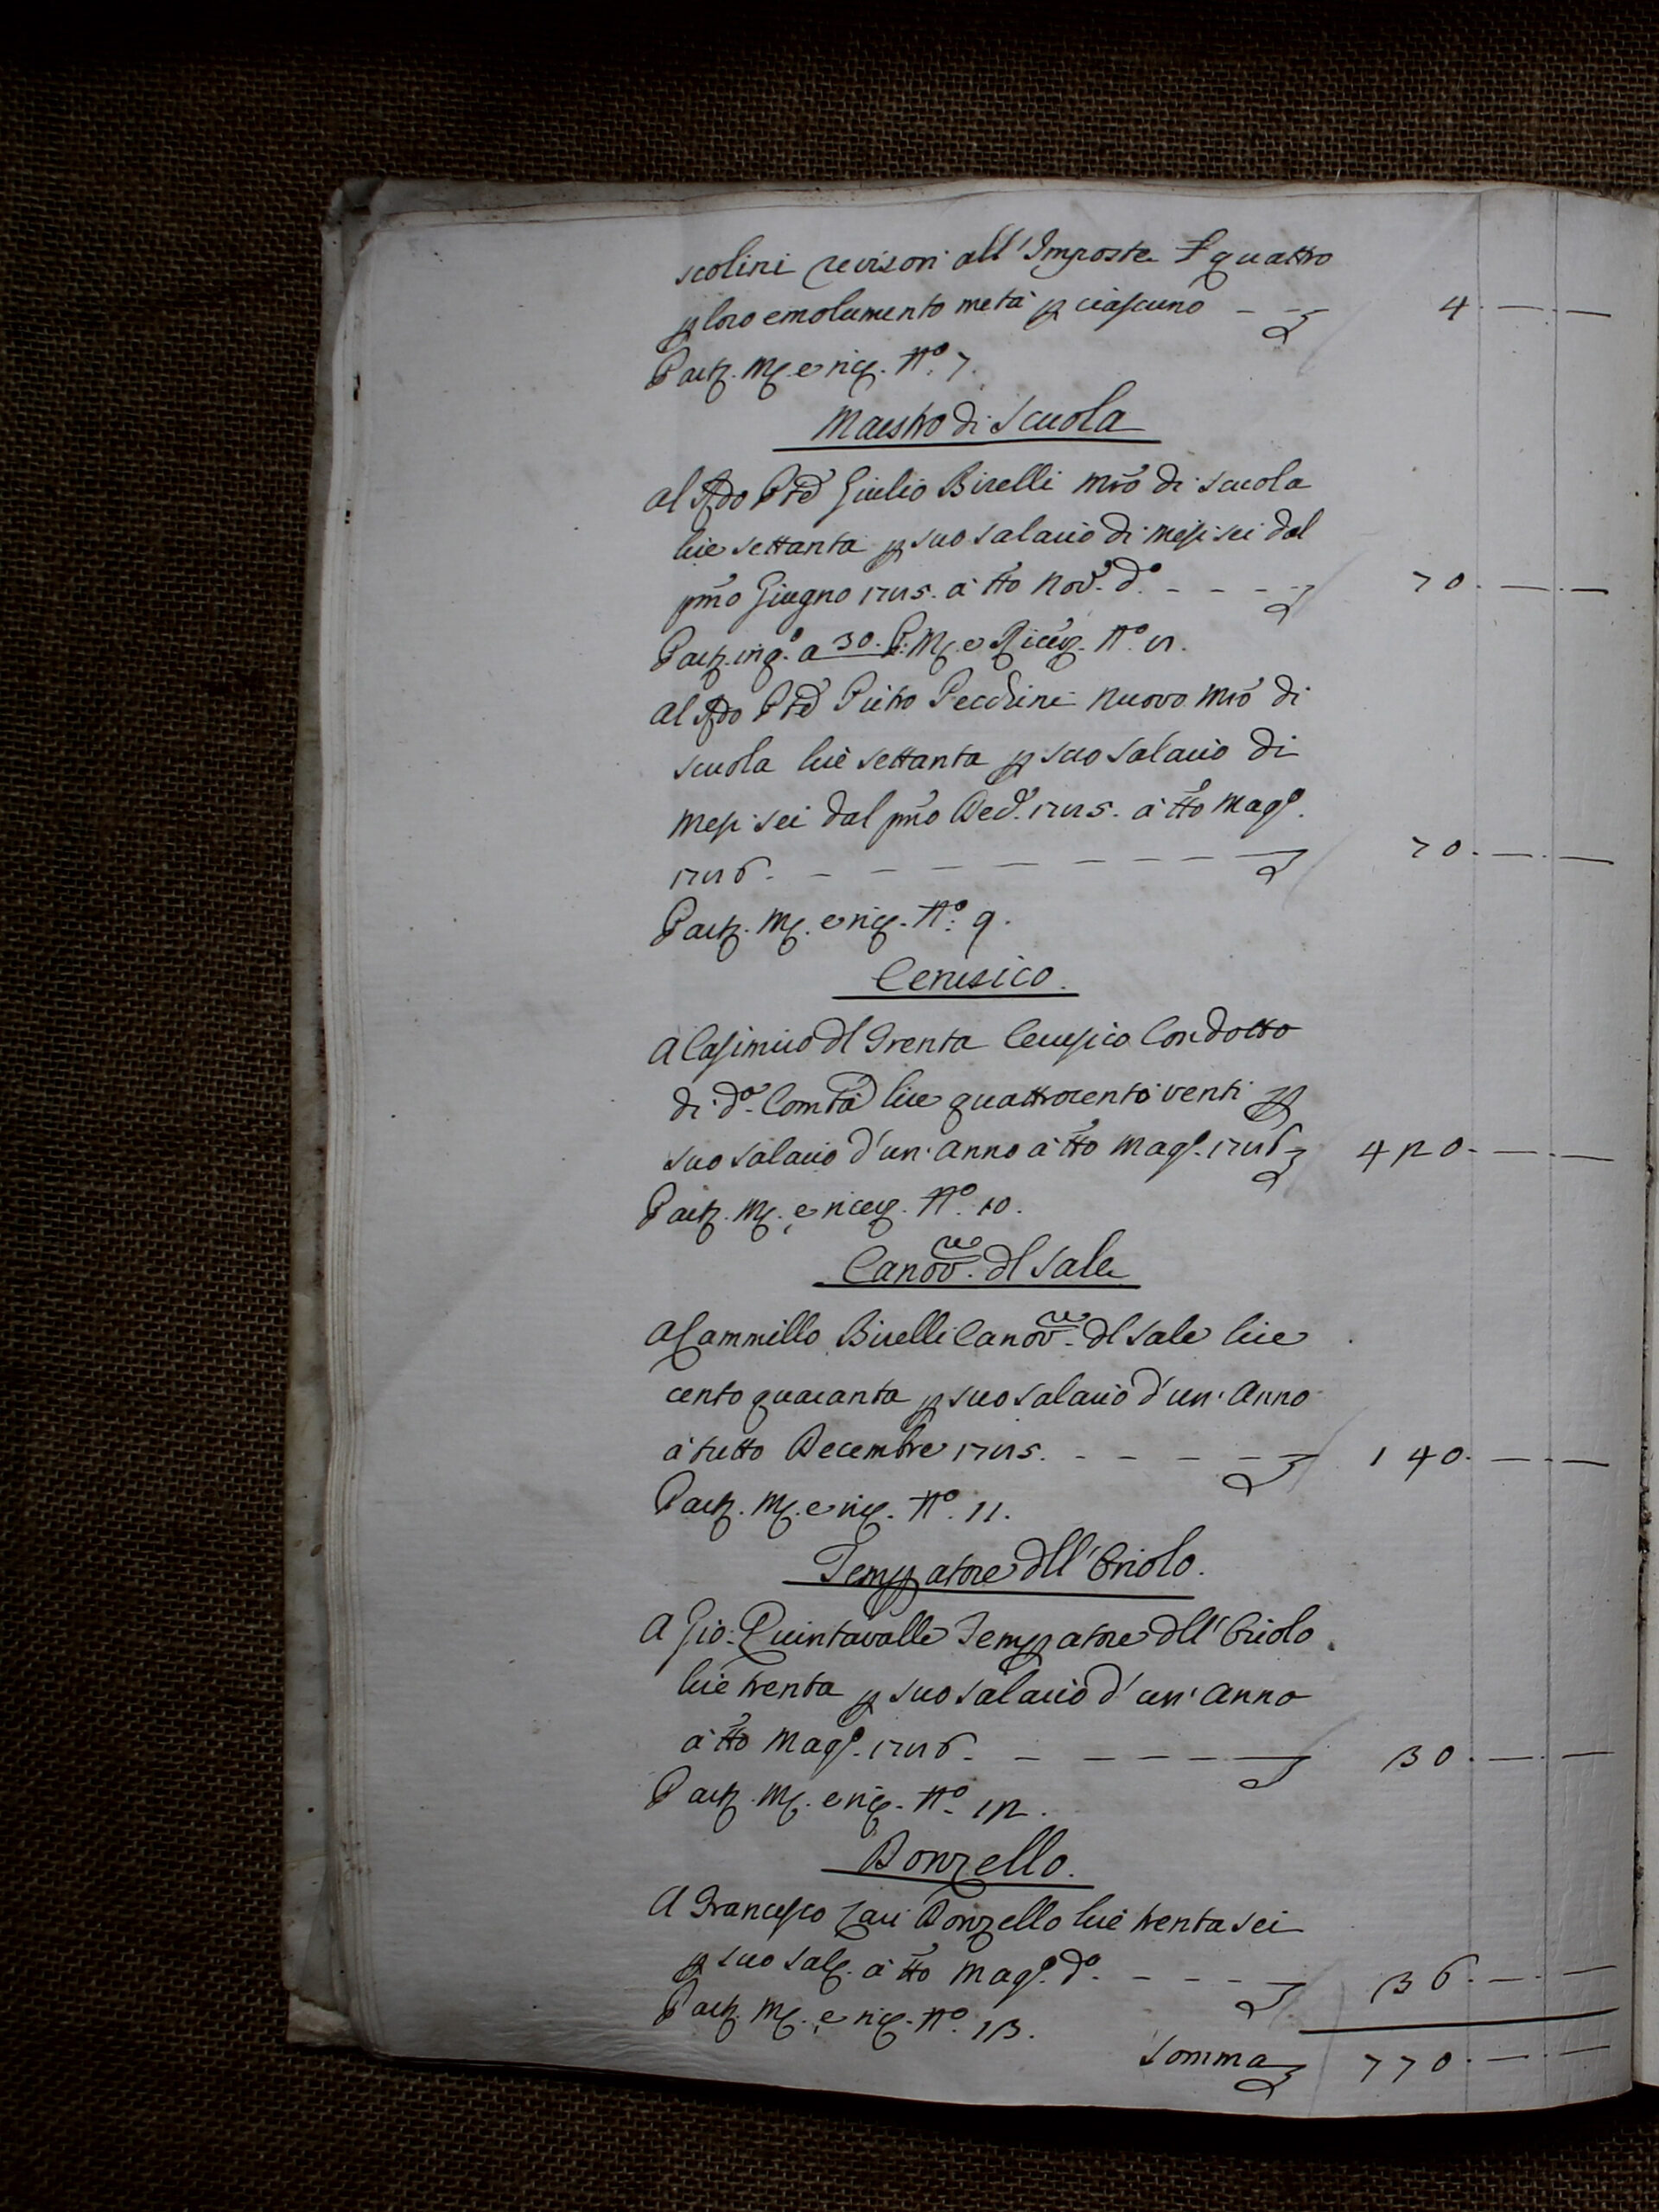 scolini revisori all'Imposte £ quattro
p loro emolumento metà p ciascuno - - - 4. — . —
Part. M. e ric. N.° 7.
Maestro di Scuola
Al Rdo Pre Giulio Birelli mro di scuola
lire settanta p suo salario di mesi sei dal
pmo Giugno 1785. a tto Nov. d.° - - - - 70. — . —
Part. ing.° a 30. P. M. e Ricev. N.° 8.
Al Rdo Pre Pietro Pecchini nuovo mro di
scuola lire settanta p suo salario di
mesi sei dal pmo Dec. 1785. a tto Mag.°
1786. - - - - - - - 70. — . —
Part. M. e ric. N.° 9.
Cerusico.
A Casimiro dl Trenta Cerusico Condotto
di d.a Comtà lire quattrocento venti p
suo salario d'un' anno a tto Mag.° 1786 420. — . —
Part. M. e ricev. N.° 10.
Canov.re dl Sale
A Cammillo Birelli Canov.re dl sale lire
cento quaranta p suo salario d'un' Anno
a tutto Decembre 1785. - - - - - 140. — . —
Part. M. e ric. N.° 11.
Tempatore dll' Oriolo.
A Gio: Quintavalle Tempatore dll' Oriolo
lire trenta p suo salario d' un' Anno
a tto Mag.° 1786. - - - - - 30. — . —
Part. M. e ric. N.° 12.
Donzello.
A Francesco Zari Donzello lire trenta sei
p suo sal. a tto Mag.° d.° - - - - 36. — . —
Part. M. e ric. N.° 13.
Somma 770. — . —